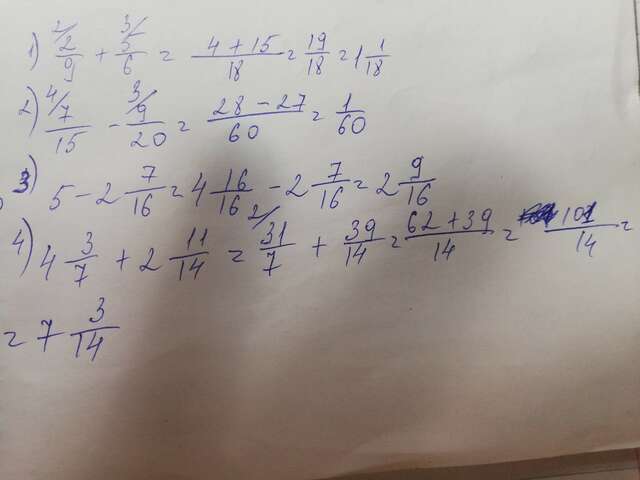 1) ²⁄ 2/9 + ³⁄ 5/6 = (4 + 15)/18 = 19/18 = 1 1/18
2) ⁴⁄ 7/15 - ³⁄ 9/20 = (28 - 27)/60 = 1/60
3) 5 - 2 7/16 = 4 16/16 - 2 7/16 = 2 9/16
4) 4 3/7 + 2 11/14 = ²⁄ 31/7 + 39/14 = (62 + 39)/14 = 101/14 =
= 7 3/14